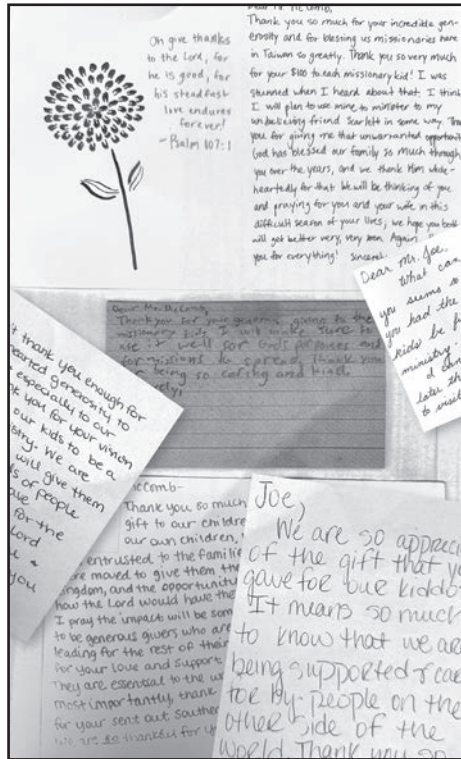 Dear Mr. McComb,
Thank you so much for your incredible gen-
erosity and for blessing us missionaries here
in Taiwan so greatly. Thank you so very much
for your $100 to each missionary kid! I was
stunned when I heard about that. I think
I will plan to use mine to minister to my
unbelieving friend Scarlett in some way. Than
you for giving me that unwarranted opportunit
God has blessed our family so much through
you over the years, and we thank Him whole-
heartedly for that. We will be thinking of you
and praying for you and your wife in this
difficult season of your lives; we hope you both
will get better very, very soon. Again
you for everything! Sincerel
Oh give thanks
to the Lord, for
he is good, for
his steadfast
love endures
forever!
-Psalm 107:1
Dear Mr. McComb,
Thank you for your generous giving to the
missionary kids. I will make sure to
use it well for Gods purposes and
for missions to spread. Thank you
r being so caring and kind.
rely,
Dear Mr. Joe,
What can
you seems so
you had the
kids be fi
ministry.
later th
to visit
't thank you enough for
hearted generosity to
especially to our
nk you for your vision
our kids to be a
istry. We are
will give them
s of people
ave for the
Lord
e +
you
cComb-
Thank you so much
gift to our childre
our own children,
entrusted to the familie
re moved to give them the
ingdom, and the opportunity
how the Lord would have the
I pray the impact will be som
to be generous givers who are
leading for the rest of their
for your love and support
They are essential to the w
most importantly, thank
for your sent out Souther
We are so thankful for y
Joe,
We are so appreci
of the gift that yo
gave for our kiddo
It means so much
to know that we are
being supported & car
for by people on the
other side of the
world. Thank you so